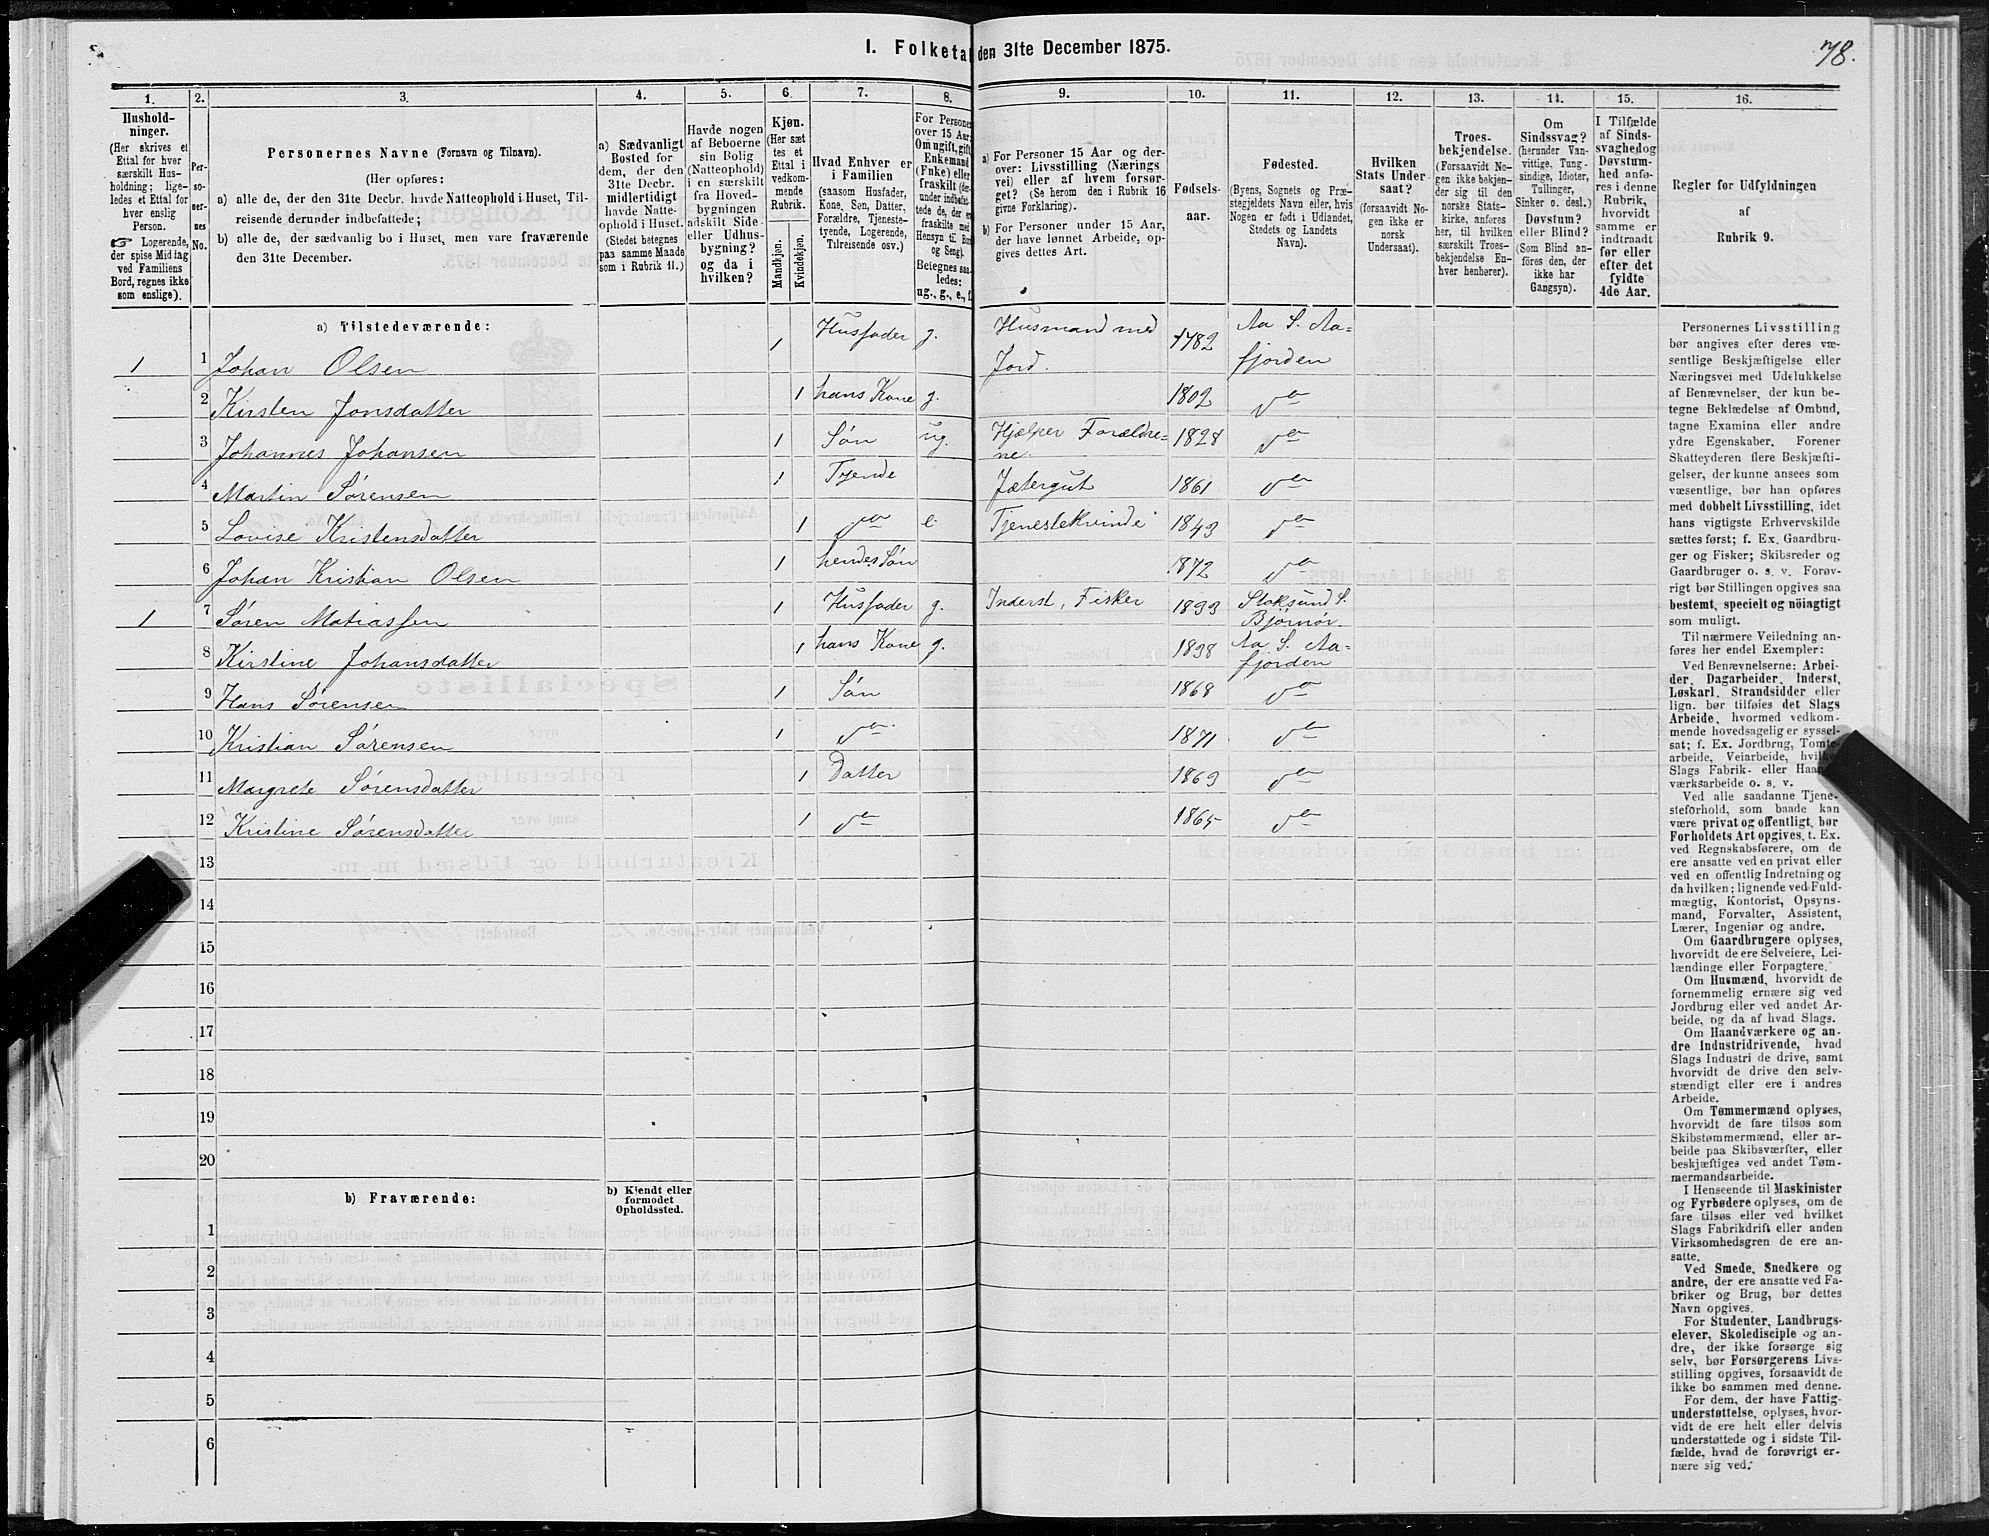 I. Folketal den 31te December 1875.
78.
1. 2. 3. 4. 5. 6. 7. 8. 9. 10. 11. 12. 13. 14. 15. 16.
Hushold-
ninger.
(Her skrives et
Ettal for hver
særskilt Hus-
holdning; lige-
ledes et Ettal for
hver enslig
Person.
☞ Logerende,
der spise Middag
ved Familiens
Bord, regnes ikke
som enslige).
Per-
so-
ner-
nes
No.
Personernes Navne (Fornavn og Tilnavn).
(Her opføres:
a) alle de, der den 31te Decbr. havde Natteophold i Huset, Til-
reisende derunder indbefattede;
b) alle de, der sædvanlig bo i Huset, men vare fraværende
den 31te December.
a) Sædvanligt
Bosted for
dem, der den
31te Decbr.
midlertidigt
havde Natte-
ophold i Huset.
(Stedet betegnes
paa samme Maade
som i Rubrik 11.)
Havde nogen
af Beboerne
sin Bolig
(Natteophold)
i en særskilt
fra Hoved-
bygningen
adskilt Side-
eller Udhus-
bygning?
og da i
hvilken?
Kjøn.
(Her sæt-
tes et
Ettal i
vedkom-
mende
Rubrik.
Mandkjøn.
Kvindekjøn.
Hvad Enhver er
i Familien
(saasom Husfader,
Kone, Søn, Datter,
Forældre, Tjeneste-
tyende, Logerende,
Tilreisende osv.)
For Personer
over 15 Aar:
Om ugift, gift,
Enkemand
(Enke) eller
fraskilt
Betegnes saa-
ledes:
ug., g., e., f.
a) For Personer 15 Aar og der-
over: Livsstilling (Nærings-
vei) eller af hvem forsør-
get? (Se herom den i Rubrik 16
givne Forklaring).
b) For Personer under 15 Aar,
der have lønnet Arbeide, op-
gives dettes Art.
Fødsels-
aar.
Fødested.
(Byens, Sognets og Præ-
stegjeldets Navn eller, hvis
Nogen er født i Udlandet,
Stedets og Landets
Navn).
Hvilken
Stats Under-
saat?
(forsaavidt No-
gen ikke er
norsk
Undersaat).
Troes-
bekjendelse.
(Forsaavidt No-
gen ikke bekjen-
der sig til den
norske Stats-
kirke, anføres
her, til hvilken
særskilt Troes-
bekjendelse En-
hver henhører).
Om
Sindssvag?
(herunder Van-
vittige, Tung-
sindige, Idioter,
Tullinger,
Sinker o. desl.)
Døvstum?
eller Blind?
(Som Blind an-
føres den, der
ikke har
Gangsyn).
I Tilfælde
af Sinds-
svaghed og
Døvstum-
hed anfø-
res i denne
Rubrik,
hvorvidt
samme er
indtraadt
før eller
efter det
fyldte
4de Aar.
Regler for Udfyldningen
af
Rubrik 9.
a) Tilstedeværende:
1 1 Johan Olsen 1 Husfader g. Husmand med Jord. 1782 Aa S. Aa=
fjorden
2 Kirsten Jonsdatter 1 hans Kone g. 1802 do
3 Johannes Johansen 1 Søn ug. Hjelper Forældre=
ne. 1828 do
4 Martin Sørensen 1 Tyende Jætergut 1861 do
5 Lovise Kristensdatter 1 do e. Tjenestekvinde 1843 do
6 Johan Kristian Olsen 1 hendes Søn 1872 do
1 7 Søren Matiassen 1 Husfader g. Inderst, Fisker 1833 Stoksund S.
Bjørnør.
8 Kirstine Johansdatter 1 hans Kone g. 1838 Aa S. Aa=
fjorden
9 Hans Sørensen 1 Søn 1868 do
10 Kristian Sørensen 1 do 1871 do
11 Margrete Sørensdatter 1 Datter 1863 do
12 Kristine Sørensdatter 1 do 1865 do
13
14
15
16
17
18
19
20
b) Fraværende:
b) Kjendt eller
formodet
Opholdssted.
1
2
3
4
5
6
Personernes Livsstilling
bør angives efter deres væ-
sentlige Beskjæftigelse eller
Næringsvei med Udelukkelse
af Benævnelser, der kun be-
tegne Beklædelse af Ombud,
tagne Examina eller andre
ydre Egenskaber. Forener
Skatteyderen flere Beskjæfti-
gelser, der kunne ansees som
væsentlige, bør han opføres
med dobbelt Livsstilling, idet
hans vigtigste Erhvervskilde
sættes først; f. Ex. Gaardbru-
ger og Fisker; Skibsreder og
Gaardbruger o. s. v. Forøv-
rigt bør Stillingen opgives saa
bestemt, specielt og nöiagtigt
som muligt.
Til nærmere Veiledning an-
føres her endel Exempler:
Ved Benævnelserne: Arbei-
der, Dagarbeider, Inderst,
Løskarl, Strandsidder eller
lign. bør tilføies det Slags
Arbeide, hvormed vedkom-
mende hovedsagelig er syssel-
sat; f. Ex. Jordbrug, Tomte-
arbeide, Veiarbeide, hvilket
Slags Fabrik- eller Haand-
værksarbeide o. s. v.
Ved alle saadanne Tjene-
steforhold, som baade kan
være privat og offentligt, bør
Forholdets Art opgives, t. Ex.
ved Regnskabsførere, om de
ere ansatte ved en privat eller
ved en offentlig Indretning og
da hvilken; lignende ved Fuld-
mægtig, Kontorist, Opsyns-
mand, Forvalter, Assistent,
Lærer, Ingeniør og andre.
Om Gaardbrugere oplyses,
hvorvidt de ere Selveiere, Lei-
lændinge eller Forpagtere.
Om Husmænd, hvorvidt de
fornemmelig ernære sig ved
Jordbrug eller ved andet Ar-
beide, og da af hvad Slags.
Om Haandværkere og an-
dre Industridrivende, hvad
Slags Industri de drive, samt
hvorvidt de drive den selv-
stændigt eller ere i andres
Arbeide.
Om Tømmermænd oplyses,
hvorvidt de fare tilsøs som
Skibstømmermænd, eller ar-
beide paa Skibsværfter, eller
beskjæftiges ved andet Tøm-
mermandsarbeide.
I Henseende til Maskinister
og Fyrbødere oplyses, om de
fare tilsøs eller ved hvilket
Slags Fabrikdrift eller anden
Virksomhedsgren de ere an-
satte.
Ved Smede, Snedkere og
andre, der ere ansatte ved Fa-
briker og Brug, bør dettes
Navn opgives.
For Studenter, Landbrugs-
elever, Skoledisciple og an-
dre, der ikke forsørge sig
selv, bør Forsørgerens Livs-
stilling opgives, forsaavidt de
ikke bo sammen med denne.
For dem, der have Fattig-
understøttelse, oplyses, hvor-
vidt de ere helt eller delvis
understøttede og i sidste Til-
fælde, hvad de forøvrigt er-
nære sig ved.